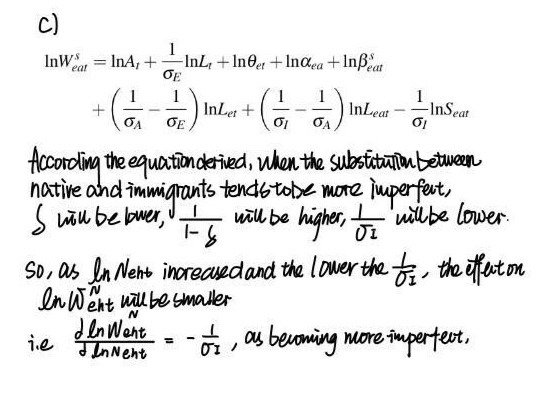 c)
lnW^s_{eat} = lnA_t + \frac{1}{σ_E} lnL_t + lnθ_{et} + lnα_{ea} + lnβ^s_{eat}
+ (\frac{1}{σ_A} − \frac{1}{σ_E}) lnL_{et} + (\frac{1}{σ_I} − \frac{1}{σ_A}) lnL_{eat} − \frac{1}{σ_I} lnS_{eat}
According the equation derived, when the substitution between
native and immigrants tends to be more imperfect,
δ will be lower, \frac{1}{1-δ} will be higher, \frac{1}{σ_I} will be lower.
So, as ln N_{eht} increased and the lower the \frac{1}{σ_I}, the effect on
ln W^N_{eht} will be smaller
i.e \frac{∂ ln W^N_{eht}}{∂ ln N_{eht}} = - \frac{1}{σ_I}, as becoming more imperfect,